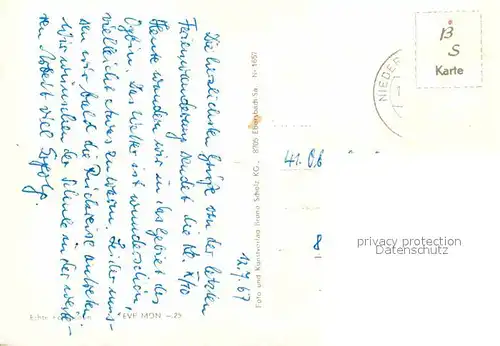 12.7.67
Die herzlichsten Grüße von der letzten
Ferienwanderung sendet die Kl. X/10
Heute wandern wir in das Gebiet des
Oybin. Das Wetter ist wunderschön,
vielleicht etwas zu warm. Leider müs-
sen wir bald die Rückreise antreten.
Wir wünschen der Schule in der weite-
ren Arbeit viel Erfolg.
Echte
EVP MDN -.25
Foto und Kunstverlag Bruno Scholz KG., 8705 Ebersbach/Sa. Nr. 1657
NIEDER
B
S
Karte
privacy protection
Datenschutz
8